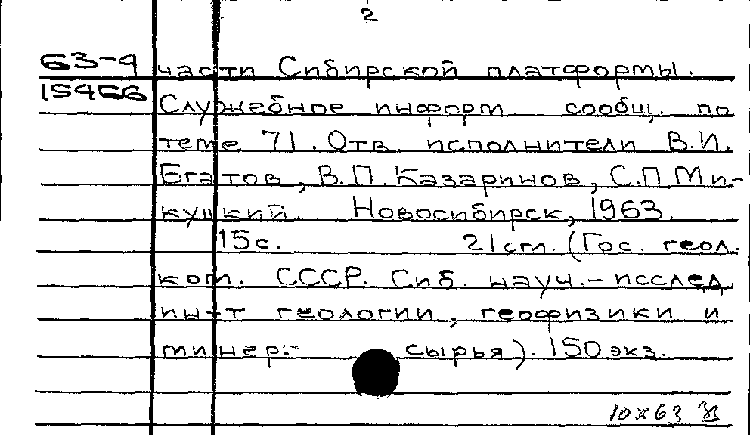 2
63-4 части Сибирской платформы.
15466 Служебное информ. сообщ. по
теме 71. Отв. исполнители В.И.
Бгатов, В.П. Казаринов, С.П. Ми-
куцкий. Новосибирск, 1963.
15с. 21 см. (Гос. геол.
ком. СССР. Сиб. науч.-исслед.
ин-т геологии, геофизики и
минер. сырья). 150 экз.
10X63